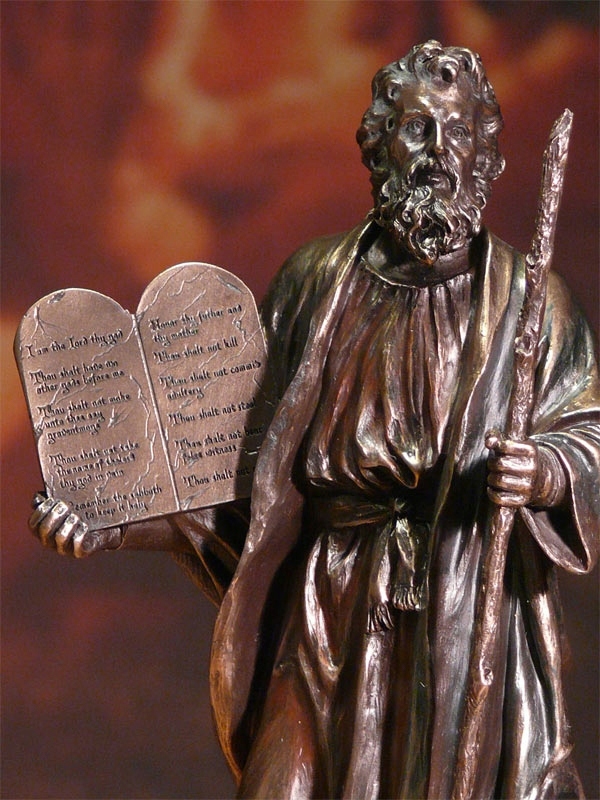 I am the Lord thy god
Thou shalt have no
other gods before me
Thou shalt not make
unto thee any
Thou shalt not take
thy god in vain
Remember the sabbath
to keep it holy
Honor thy father and
thy mother
Thou shalt not kill
Thou shalt not commit
Thou shalt not steal
Thou shalt not bear
false witness
Thou shalt not